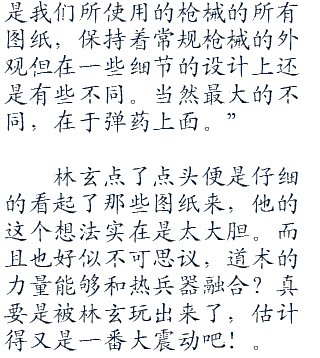 是我们所使用的枪械的所有
图纸，保持着常规枪械的外
观但在一些细节的设计上还
是有些不同。当然最大的不
同，在于弹药上面。”
林玄点了点头便是仔细
的看起了那些图纸来，他的
这个想法实在是太大胆。而
且也好似不可思议，道术的
力量能够和热兵器融合？真
要是被林玄玩出来了，估计
得又是一番大震动吧！。